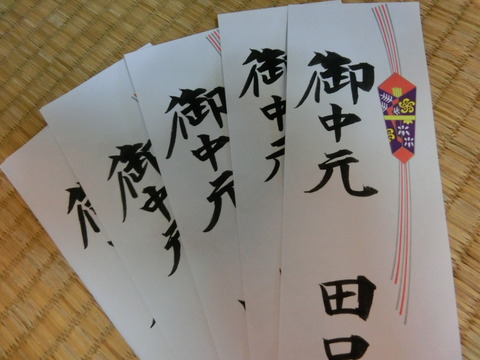 御中元
田口
御中元
御中元
御中元
御